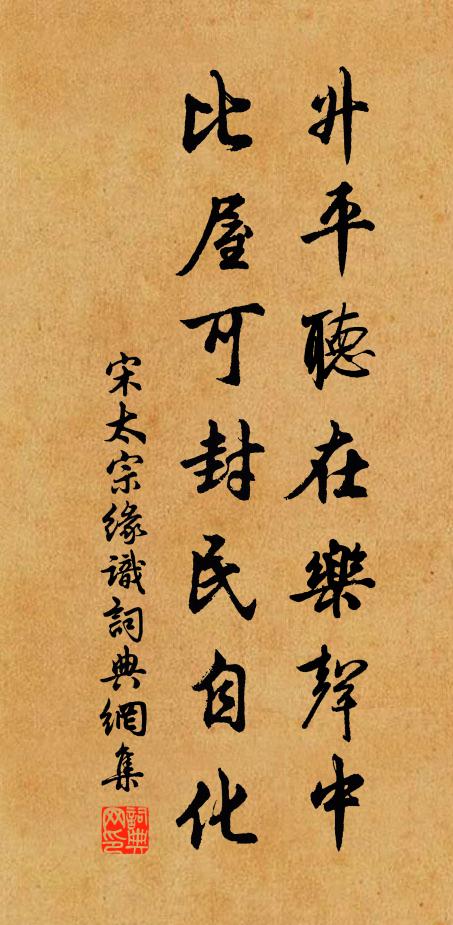 升平聽在樂聲中
比屋可封民自化
宋太宗緣識詞典網集
詞典網印